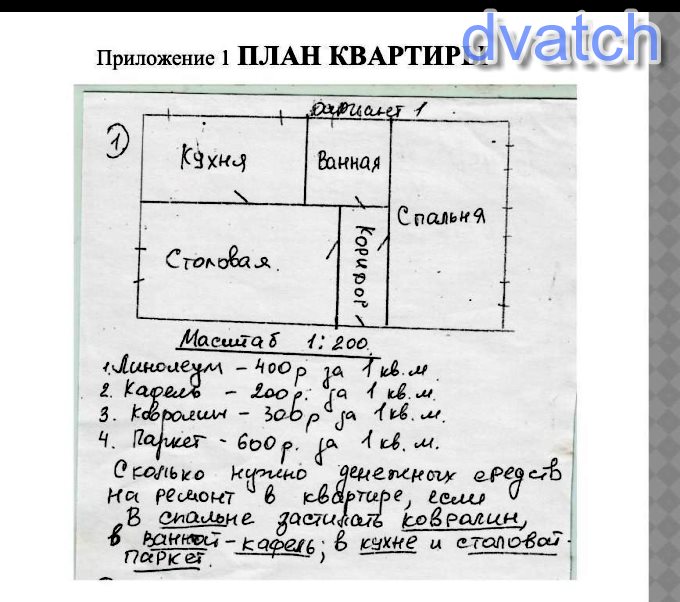 dvatch
Приложение 1 ПЛАН КВАРТИРЫ
вариант 1
1)
Кухня
Ванная
Спальня
Столовая.
Коридор
Масштаб 1:200.
1. Линолеум - 400р за 1 кв.м.
2. Кафель - 200р. за 1 кв.м.
3. Ковролин - 300р за 1кв.м.
4. Паркет - 600р. за 1 кв.м.
Сколько нужно денежных средств
на ремонт в квартире, если
В спальне застилать ковралин,
в ванной - кафель; в кухне и столовой -
паркет.